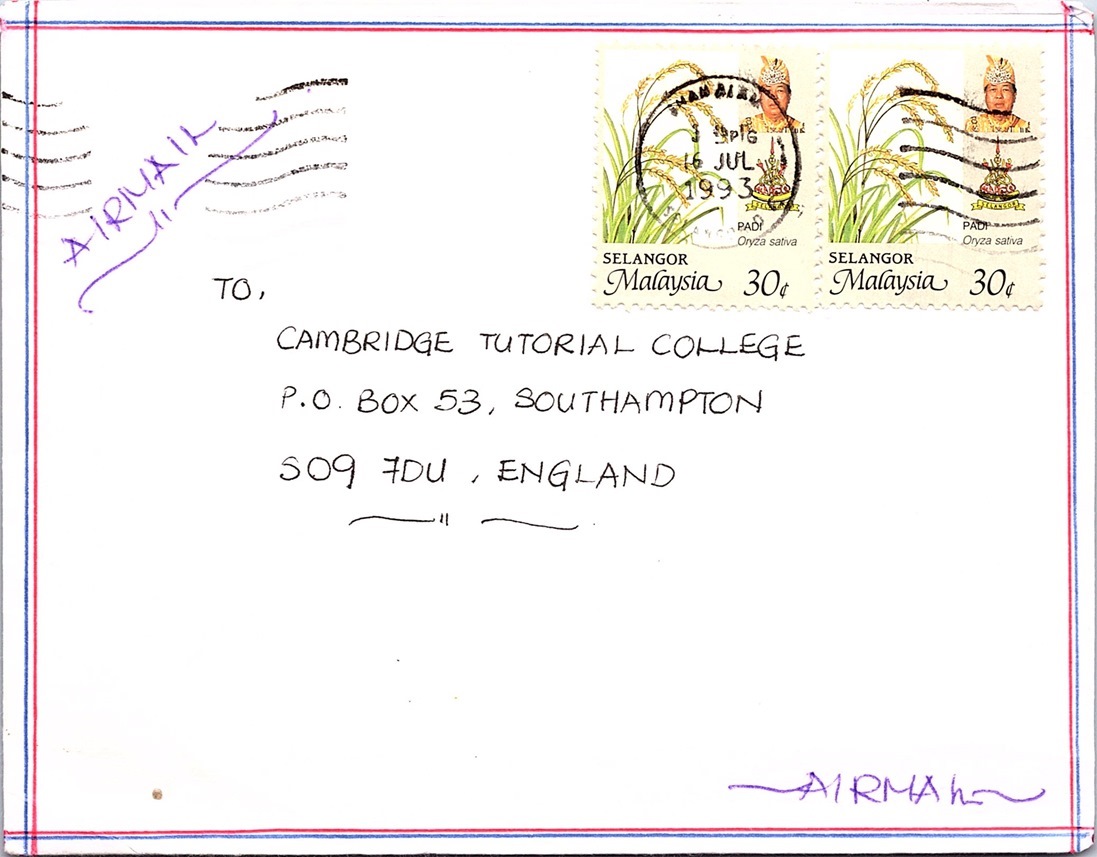 AIRMAIL
3 30PTG
16 JUL
1993
PADI
Oryza sativa
SELANGOR
Malaysia 30¢
SELANGOR
PADI
Oryza sativa
SELANGOR
Malaysia 30¢
SELANGOR
TO,
CAMBRIDGE TUTORIAL COLLEGE
P.O. BOX 53, SOUTHAMPTON
SO9 7DU, ENGLAND
AIRMAIL